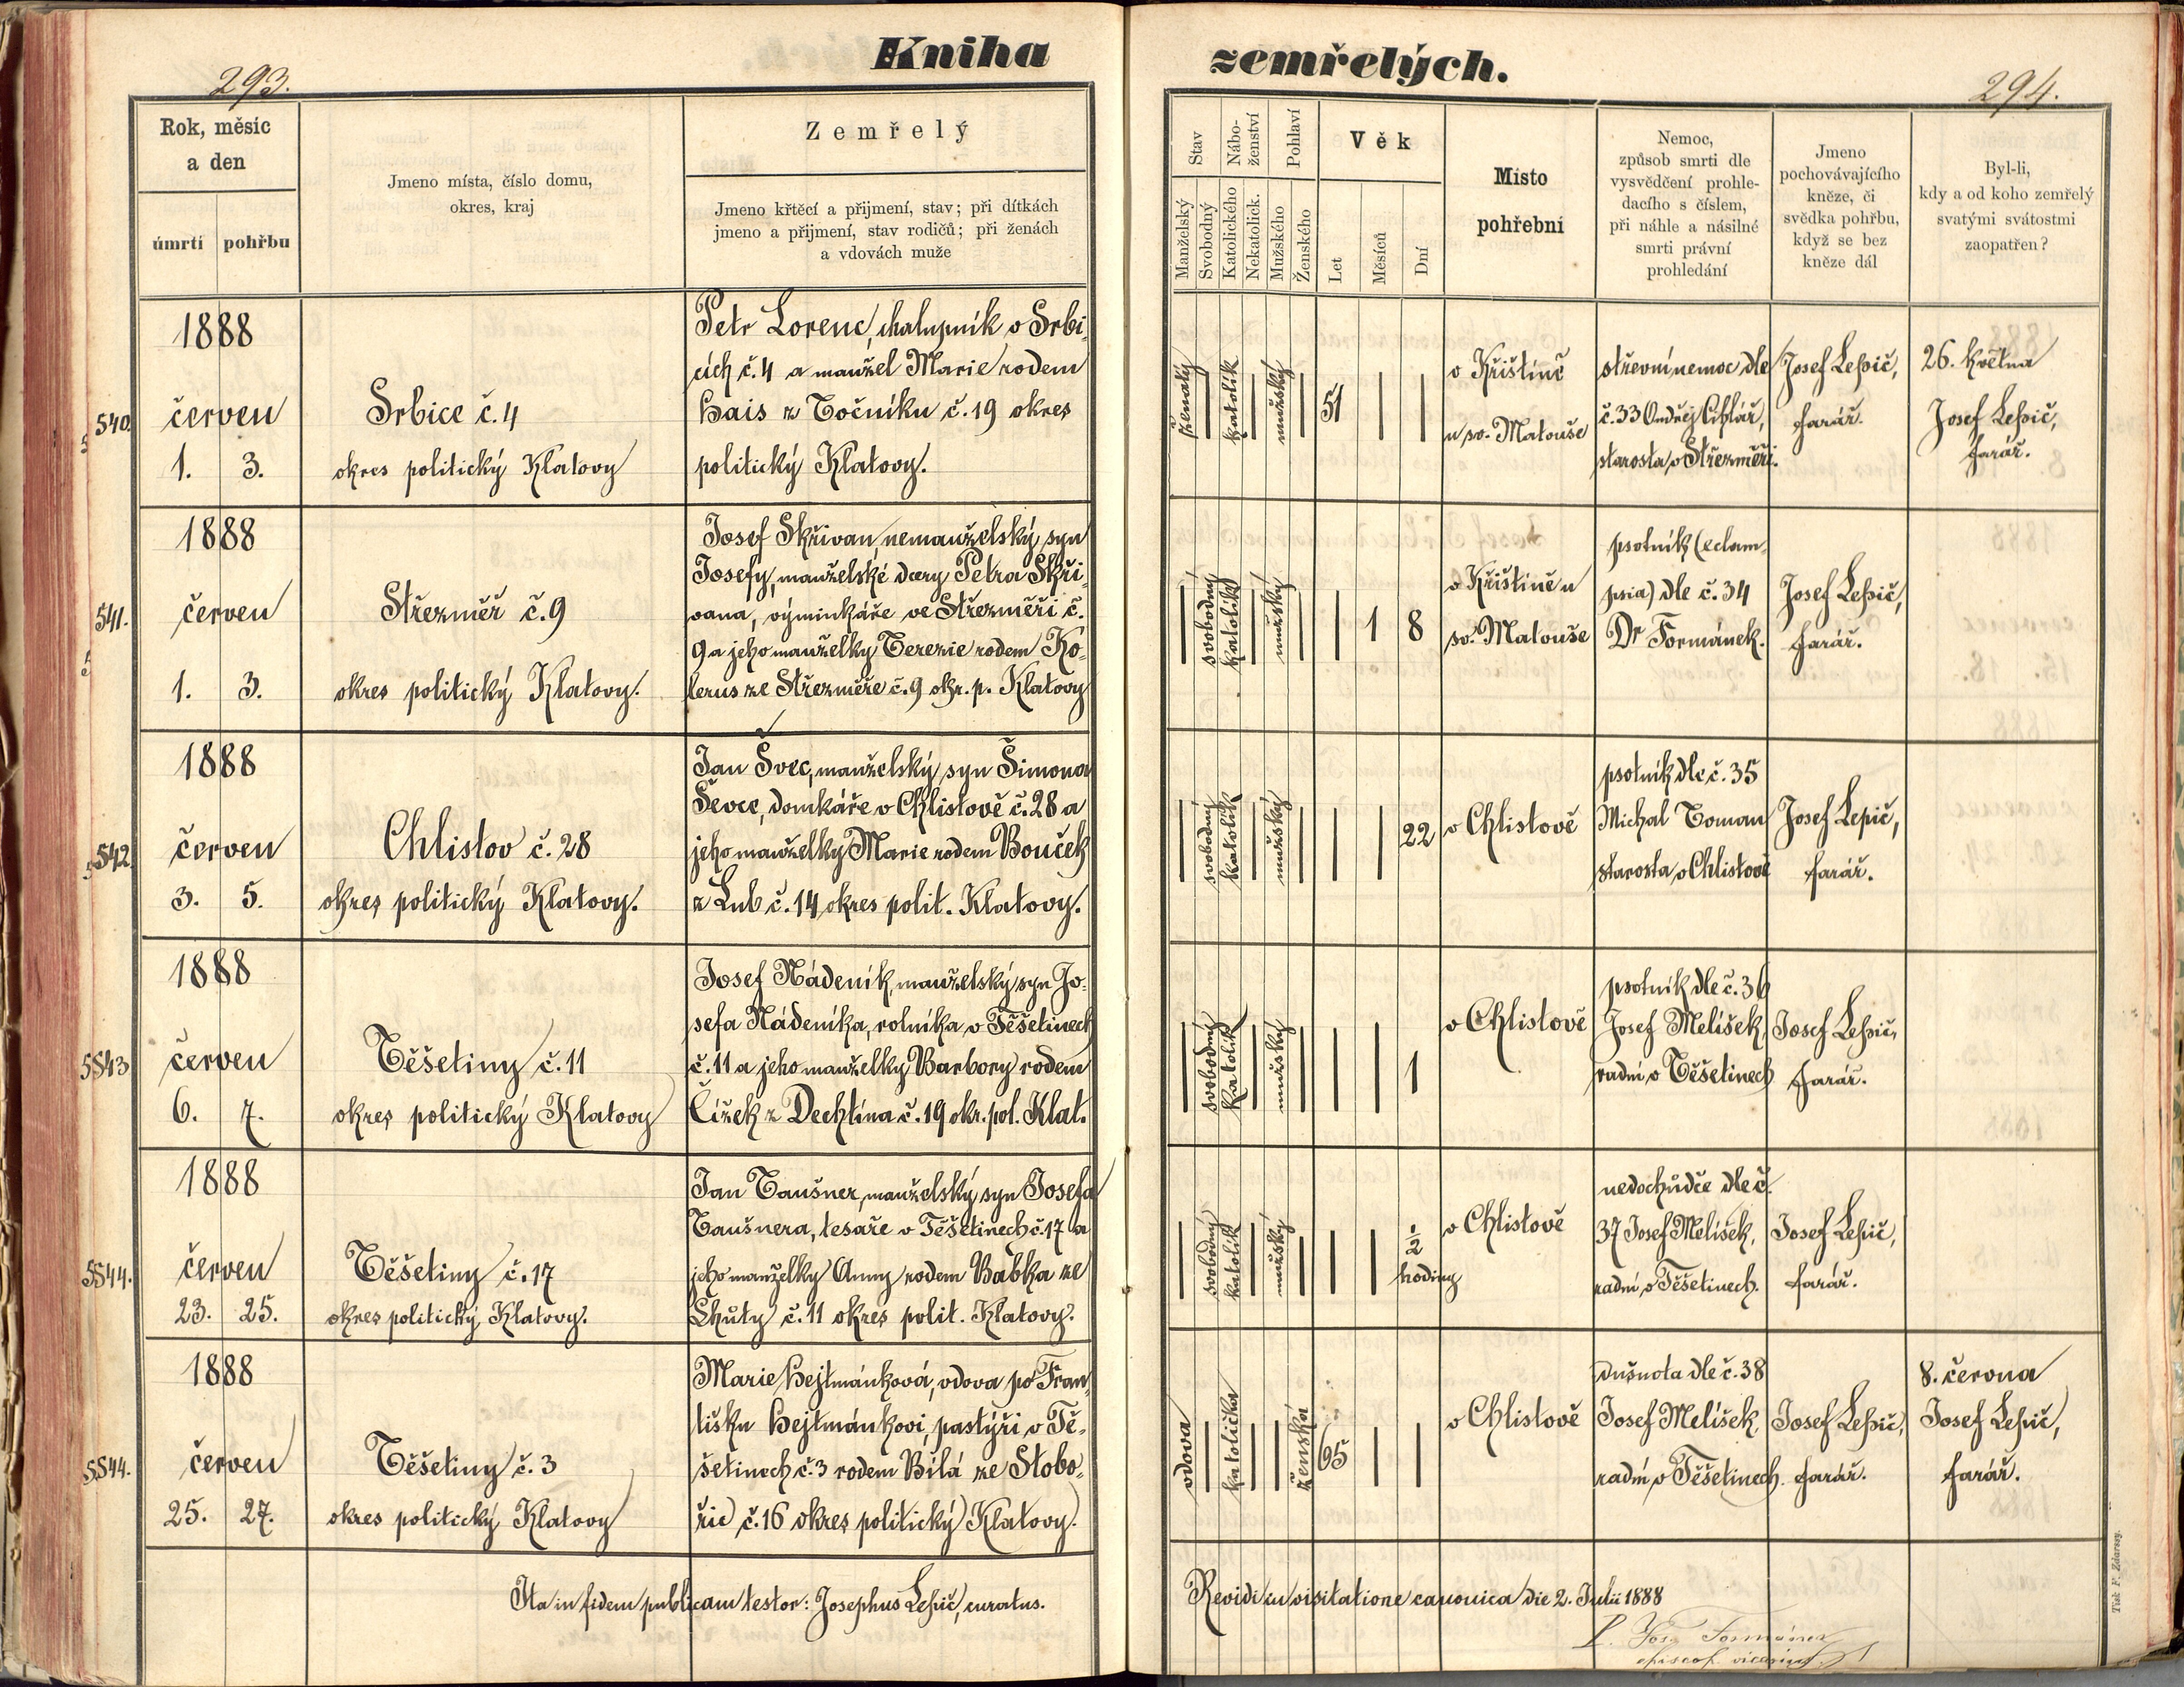 Kniha zemřelých.
293.
294.
Rok, měsíc
a den
úmrtí pohřbu
Jmeno místa, číslo domu,
okres, kraj
Zemřelý
Jmeno křtěcí a přijmení, stav; při dítkách
jmeno a přijmení, stav rodičů; při ženách
a vdovách muže
Stav
Manželský
Svobodný
Nábo-
ženství
Katolického
Nekatolick.
Pohlaví
Mužského
Ženského
Věk
Let
Měsíců
Dní
Místo
pohřební
Nemoc,
způsob smrti dle
vysvědčení prohle-
dacího s číslem,
při náhle a násilné
smrti právní
prohledání
Jmeno
pochovávajícího
kněze, či
svědka pohřbu,
když se bez
kněze dál
Byl-li,
kdy a od koho zemřelý
svatými svátostmi
zaopatřen?
540.
1888
červen
1. 3.
Srbice č. 4
okres politický Klatovy
Petr Lorenc, chalupník v Srbi-
cích č. 4 a manžel Marie rodem
Hais z Točníku č. 19 okres
politický Klatovy.
ženatý
katolík
mužský
51
v Křištíně
u sv. Matouše
střevní nemoc dle
č. 33 Ondřej Cihlář,
starosta v Střezměři.
Josef Lepič,
farář.
26. května
Josef Lepič,
farář.
541.
1888
červen
1. 3.
Střezměř č. 9
okres politický Klatovy.
Josef Skřivan, nemanželský syn
Josefy, manželské dcery Petra Skři-
vana, výminkáře ve Střezměři č.
9 a jeho manželky Terezie rodem Ko-
lerus ze Střezměře č. 9 okr. p. Klatovy
svobodný
katolík
mužský
1 8
v Křištíně u
sv. Matouše
psotník (eclam-
psia) dle č. 34
Dr Formánek.
Josef Lepič,
farář.
542.
1888
červen
3. 5.
Chlistov č. 28
okres politický Klatovy.
Jan Švec, manželský syn Šimona
Ševce, domkáře v Chlistově č. 28 a
jeho manželky Marie rodem Bouček
z Lub č. 14 okres polit. Klatovy.
svobodný
katolík
mužský
22
v Chlistově
psotník dle č. 35
Michal Toman
starosta v Chlistově
Josef Lepič,
farář.
5543
1888
červen
6. 7.
Těšetiny č. 11
okres politický Klatovy
Josef Nádeník, manželský syn Jo-
sefa Nádeníka, rolníka v Těšetinech
č. 11 a jeho manželky Barbory rodem
Čížek z Dechtína č. 19 okr. pol. Klat.
svobodný
katolík
mužský
1
v Chlistově
psotník dle č. 36
Josef Melíšek,
radní v Těšetinech
Josef Lepič,
farář.
5544.
1888
červen
23. 25.
Těšetiny č. 17
okres politický Klatovy.
Jan Taušner, manželský syn Josefa
Taušnera, tesaře v Těšetinech č. 17 a
jeho manželky Anny rodem Babka ze
Lhůty č. 11 okres polit. Klatovy.
svobodný
katolík
mužský
½
hodiny
v Chlistově
nedochůdče dle č.
37 Josef Melíšek,
radní v Těšetinech.
Josef Lepič,
farář.
5544.
1888
červen
25. 27.
Těšetiny č. 3
okres politický Klatovy
Marie Hejtmánková, vdova po Fran-
tišku Hejtmánkovi, pastýři v Tě-
šetinech č. 3 rodem Bílá ze Slobo-
řic č. 16 okres politický Klatovy.
vdova
katolička
ženská
65
v Chlistově
dušnota dle č. 38
Josef Melíšek,
radní v Těšetinech.
Josef Lepič,
farář.
8. června
Josef Lepič,
farář.
Ita in fidem publicam testor: Josephus Lepič, curatus.
Revidi in visitatione canonica die 2. Julii 1888
Tisk F. Zdarsky.